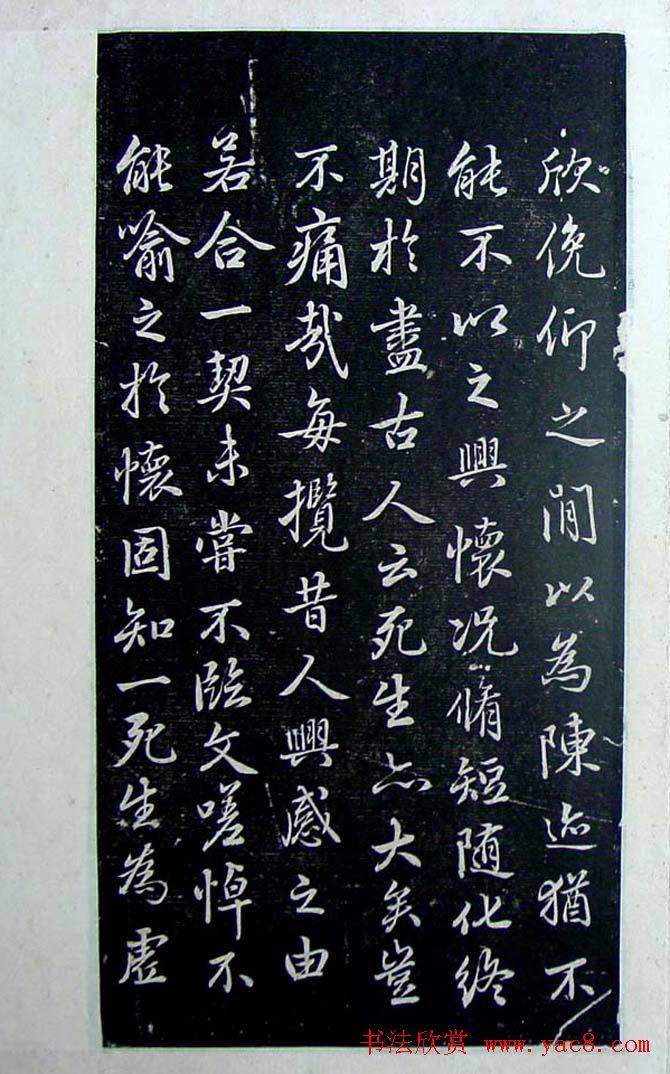 欣俛仰之間以為陳迹猶不
能不以之興懷況脩短随化終
期於盡古人云死生亦大矣豈
不痛哉每攬昔人興感之由
若合一契未嘗不臨文嗟悼不
能喻之於懷固知一死生為虛
书法欣赏 www.yac8.com